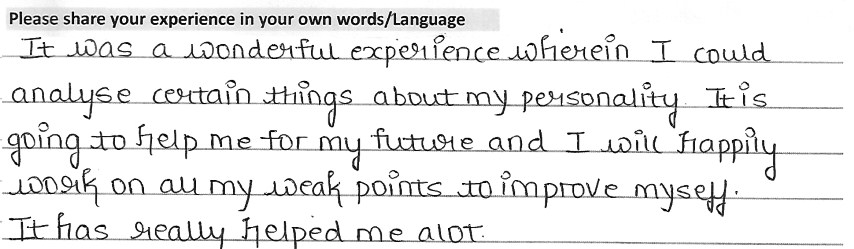 Please share your experience in your own words/Language
It was a wonderful experience wherein I could
analyse certain things about my personality. It is
going to help me for my future and I will happily
work on all my weak points to improve myself.
It has really helped me alot.